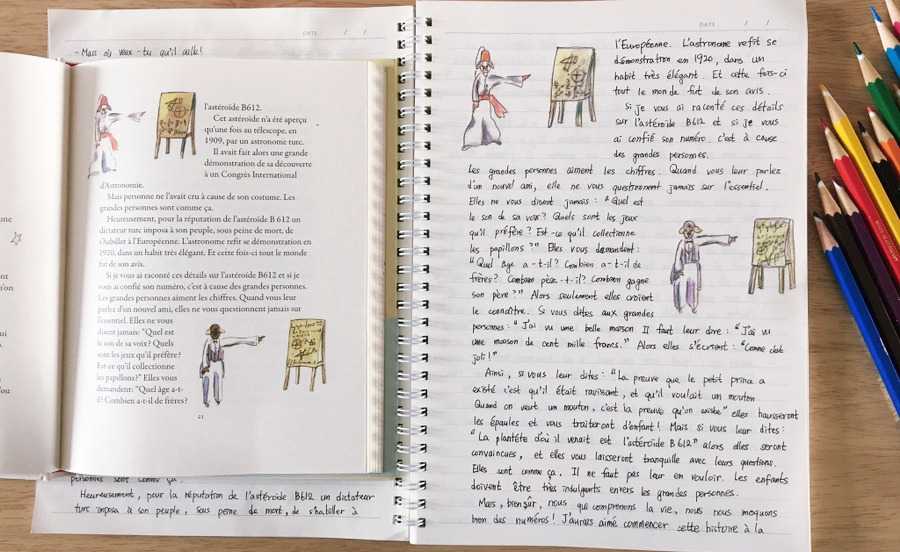 - Mass où veux-tu qu'il aille!
DATE: / /
l'astéroïde B612.
Cet astéroïde n'a été aperçu
qu'une fois au télescope, en
1909, par un astronome turc.
Il avait fait alors une grande
démonstration de sa découverte
à un Congrès International
d'Astronomie.
Mais personne ne l'avait cru à cause de son costume. Les
grandes personnes sont comme ça.
Heureusement, pour la réputation de l'astéroïde B 612 un
dictateur turc imposa à son peuple, sous peine de mort, de
s'habiller à l'Européenne. L'astronome refit sa démonstration en
1920, dans un habit très élégant. Et cette fois-ci tout le monde
fut de son avis.
Si je vous ai raconté ces détails sur l'astéroïde B612 et si je
vous ai confié son numéro, c'est à cause des grandes personnes.
Les grandes personnes aiment les chiffres. Quand vous leur
parlez d'un nouvel ami, elles ne vous questionnent jamais sur
l'essentiel. Elles ne vous
disent jamais: "Quel est
le son de sa voix? Quels
sont les jeux qu'il préfère?
Est-ce qu'il collectionne
les papillons?" Elles vous
demandent: "Quel âge a-t-
il? Combien a-t-il de frères?
21
personnes sont comme ça.
Heureusement, pour la réputation de l'astéroïde B612 un dictateur
turc imposa à son peuple, sous peine de mort, de s'habiller à
DATE: / /
l'Européenne. L'astronome refit se
démonstration en 1920, dans un
habit très élégant. Et cette fois-ci
tout le monde fut de son avis.
Si je vous ai raconté ces détails
sur l'astéroïde B612 et si je vous
ai confié son numéro, c'est à cause
des grandes personnes.
Les grandes personnes aiment les chiffres. Quand vous leur parlez
d'un nouvel ami, elle ne vous questionnent jamais sur l'essentiel.
Elles ne vous disent jamais: "Quel est
le son de sa voix? Quels sont les jeux
qu'il préfère? Est-ce qu'il collectionne
les papillons?" Elles vous demandent:
"Quel âge a-t-il? Combien a-t-il de
frères? Combien pèse-t-il? Combien gagne
son père?" Alors seulement elles croient
le connaître. Si vous dites aux grandes
personnes: "J'ai vu une belle maison Il faut leur dire: "J'ai vu
une maison de cent mille francs." Alors elles s'écrient: "Comme c'est
joli!"
Ainsi, si vous leur dites: "La preuve que le petit prince a
existé c'est qu'il était ravissant, et qu'il voulait un mouton.
Quand on veut un mouton, c'est la preuve qu'on existe" elles hausseront
les épaules et vous traiteront d'enfant! Mais si vous leur dites:
"La plantète d'où il venait est l'astéroïde B612" alors elles seront
convaincues, et elles vous laisseront tranquille avec leurs questions.
Elles sont comme ça. Il ne faut pas leur en vouloir. Les enfants
doivent être très indulgents envers les grandes personnes.
Mais, bien sûr, nous qui comprenons la vie, nous nous moquons
bien des numéros! J'aurais aimé commencer cette histoire à la